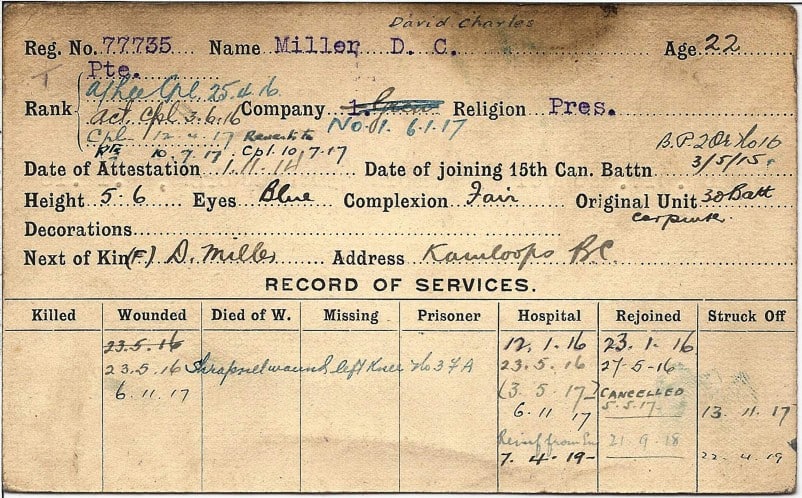 David Charles
Reg. No. 77735 Name Miller D. C. Age 22
Pte.
Rank A/Lce Cpl. 25.4.16 Company 1. Religion Pres.
Act. Cpl. 3.6.16 No. 1. 6.1.17
Cpl 12.4.17 Reverts to
10.7.17 Cpl. 10.7.17 B.P.2 Or No 16
Date of Attestation 1.11.14 Date of joining 15th Can. Battn 3/5/15.
Height 5-6 Eyes Blue Complexion Fair Original Unit 30 Batt
Decorations carpenter
Next of Kin (F) D. Miller Address Kamloops B.C.
RECORD OF SERVICES.
Killed Wounded Died of W. Missing Prisoner Hospital Rejoined Struck Off
23.5.16 12.1.16 23.1.16
23.5.16 Shrapnel wound left Knee No 3 FA 23.5.16 27-5-16
6.11.17 (3.5.17) CANCELLED
5.5.17
6.11.17 13.11.17
Reinf from En 21.9.18
7.4.19- 22.4.19